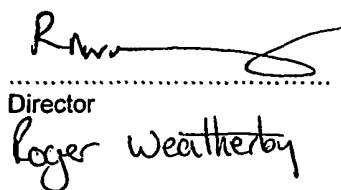 Director
Roger Weatherby